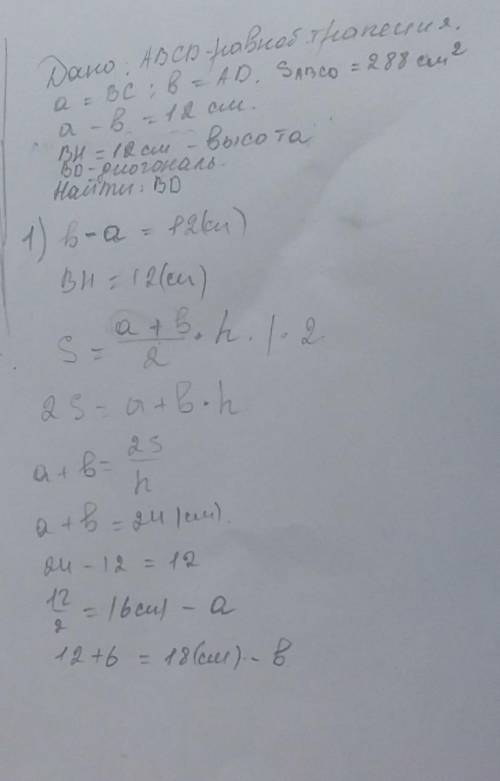 Дано: ABCD-равноб трапеция.
a = BC; b = AD. SABCD = 288 см²
a - b = 12 см.
BH = 12 см - высота
BD-диогональ.
Найти: BD
1) b - a = 12(см)
BH = 12(см)
S = (a + b)/2 · h. | · 2
2S = a + b · h
a + b = 2S/h
a + b = 24(см).
24 - 12 = 12
12/2 = 6(см) - a
12 + 6 = 18(см) - b